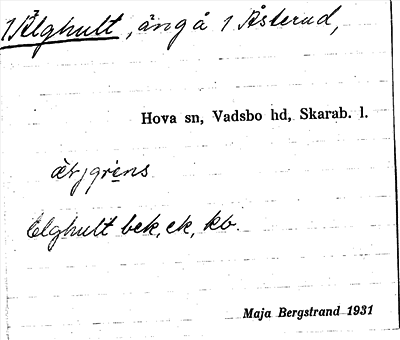 1 Älghult, äng å 1 Åsterud,
Hova sn, Vadsbo hd, Skarab. l.
Elghult bek, ek, kb.
Maja Bergstrand 1931